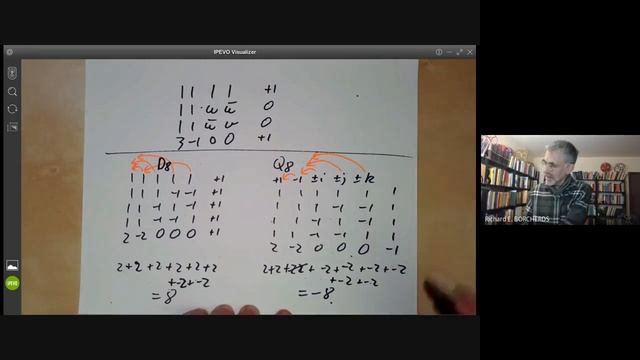 IPEVO Visualizer
1 1 1 1 +1
1 1 ω ω̄ 0
1 1 ω̄ ω 0
3 -1 0 0 +1
D8
1 1 1 1 1 +1
1 1 1 -1 -1 +1
1 1 -1 1 -1 +1
1 1 -1 -1 1 +1
2 -2 0 0 0 +1
2+2+2+2+2+2
+-2+-2
=8
Q8
+1 -1 ±i ±j ±k
1 1 1 1 1 1
1 1 1 -1 -1 1
1 1 -1 1 -1 1
1 1 -1 -1 1 1
2 -2 0 0 0 -1
+-2+-2+-2+-2
+-2+-2
=-8.
Richard E. BORCHERDS
IPEVO